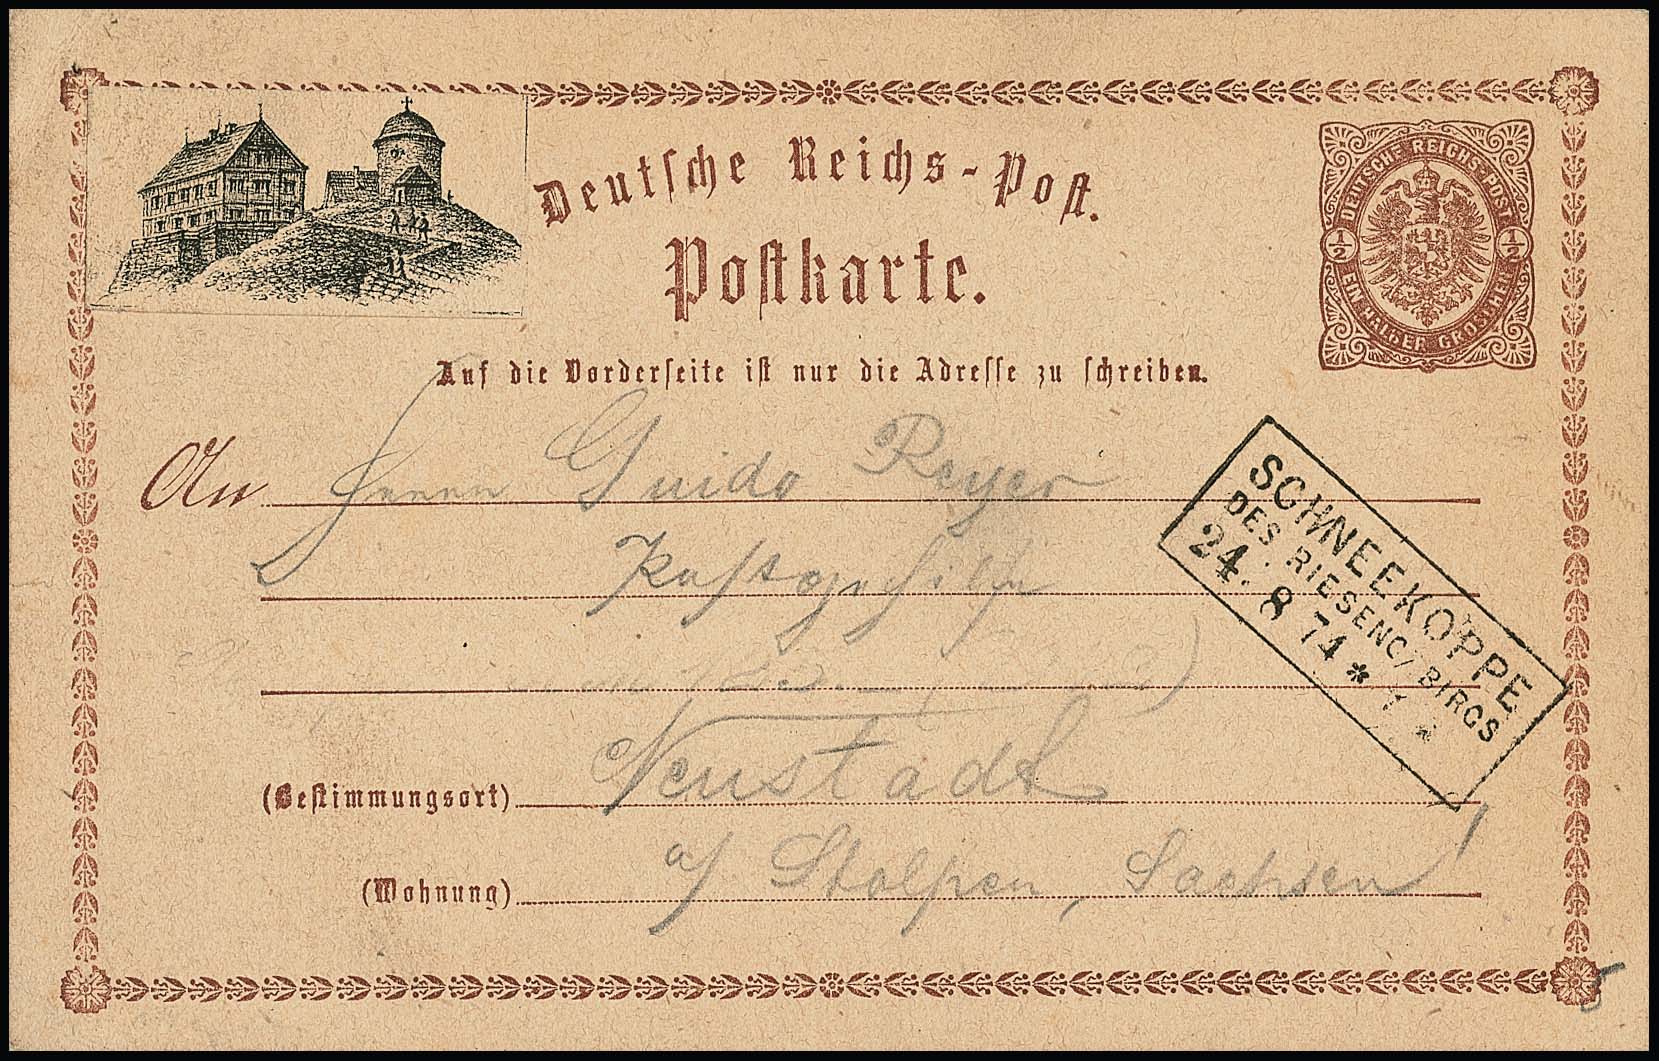 Deutsche Reichs-Post.
Postkarte.
DEUTSCHE REICHS-POST
1/2 1/2
EIN HALBER GROSCHEN
Auf die Vorderseite ist nur die Adresse zu schreiben.
An Herrn Guido Reyer
Postgehilfe
SCHNEEKOPPE
DES RIESENG/BIRGS
24. 8 74 * 1 *
(Bestimmungsort) Neustadt
(Wohnung) a/ Stolpen, Sachsen